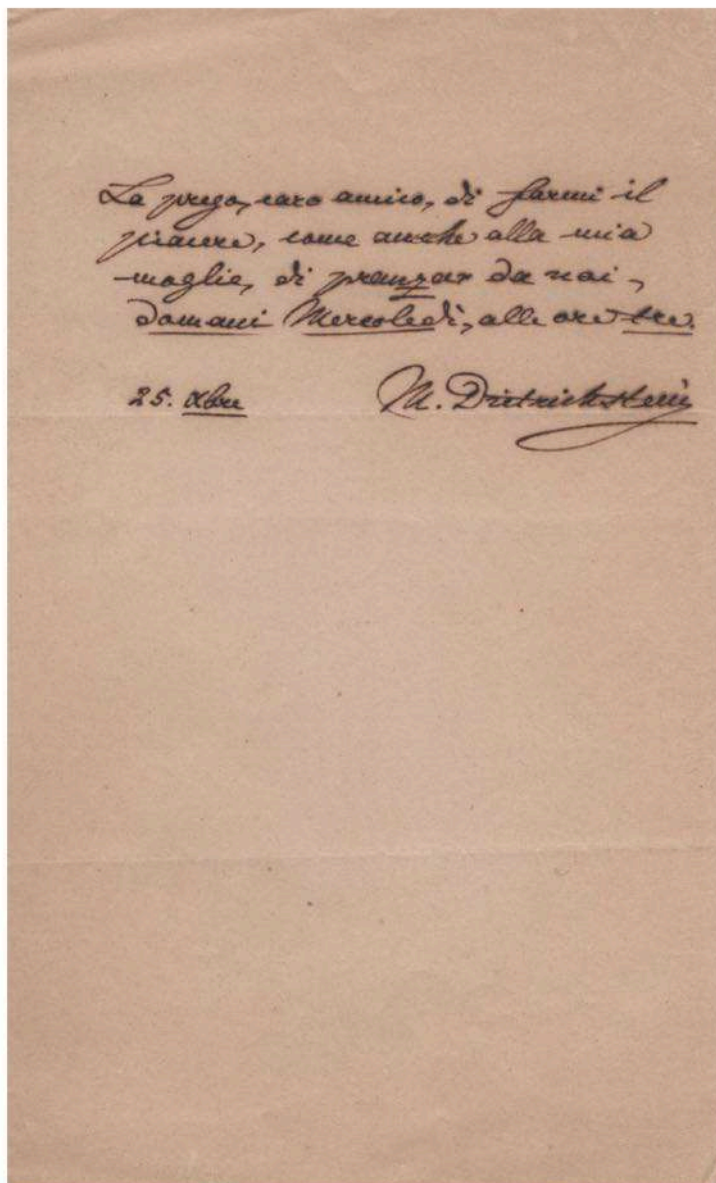 La prego, caro amico, di farmi il
piacere, come anche alla mia
moglie, di pranzar da noi,
domani Mercoledì, alle ore tre.
25. Xbre
M. Dietrichstein